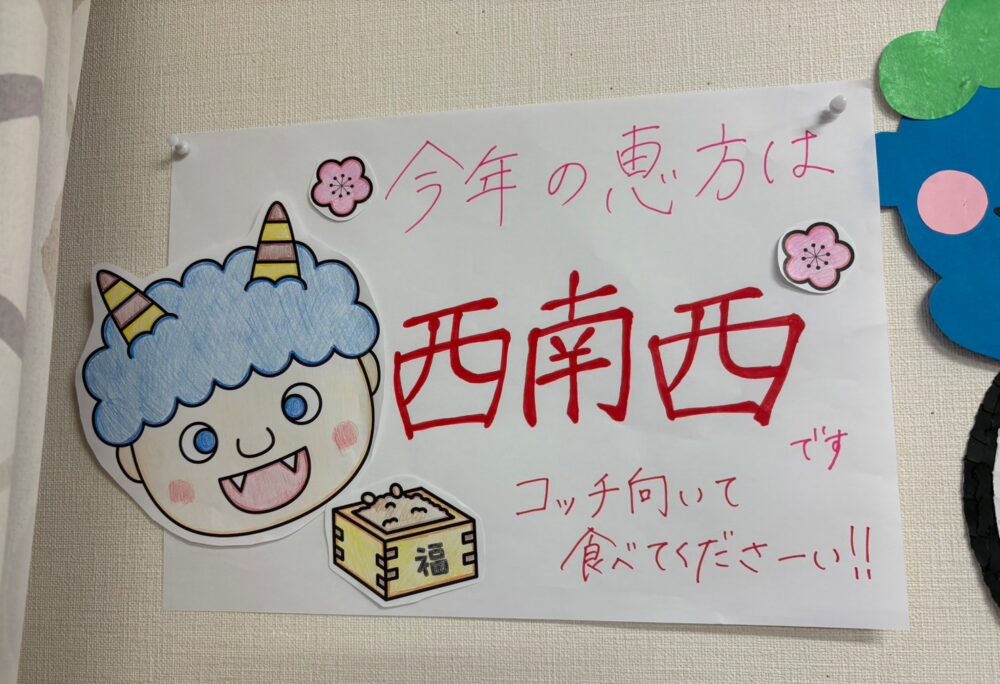 今年の恵方は
西南西
です
コッチ向いて
食べてくださーい!!
福